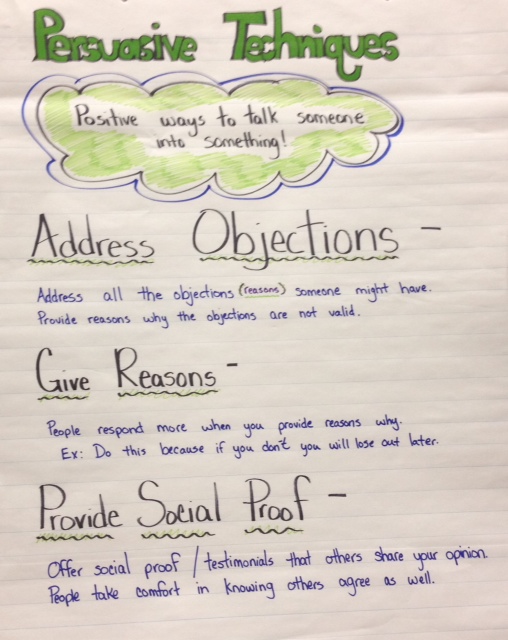 Persuasive Techniques
Positive ways to talk someone
into something!
Address Objections -
Address all the objections (reasons) someone might have.
Provide reasons why the objections are not valid.
Give Reasons -
People respond more when you provide reasons why.
Ex: Do this because if you don't you will lose out later.
Provide Social Proof -
Offer social proof / testimonials that others share your opinion.
People take comfort in knowing others agree as well.